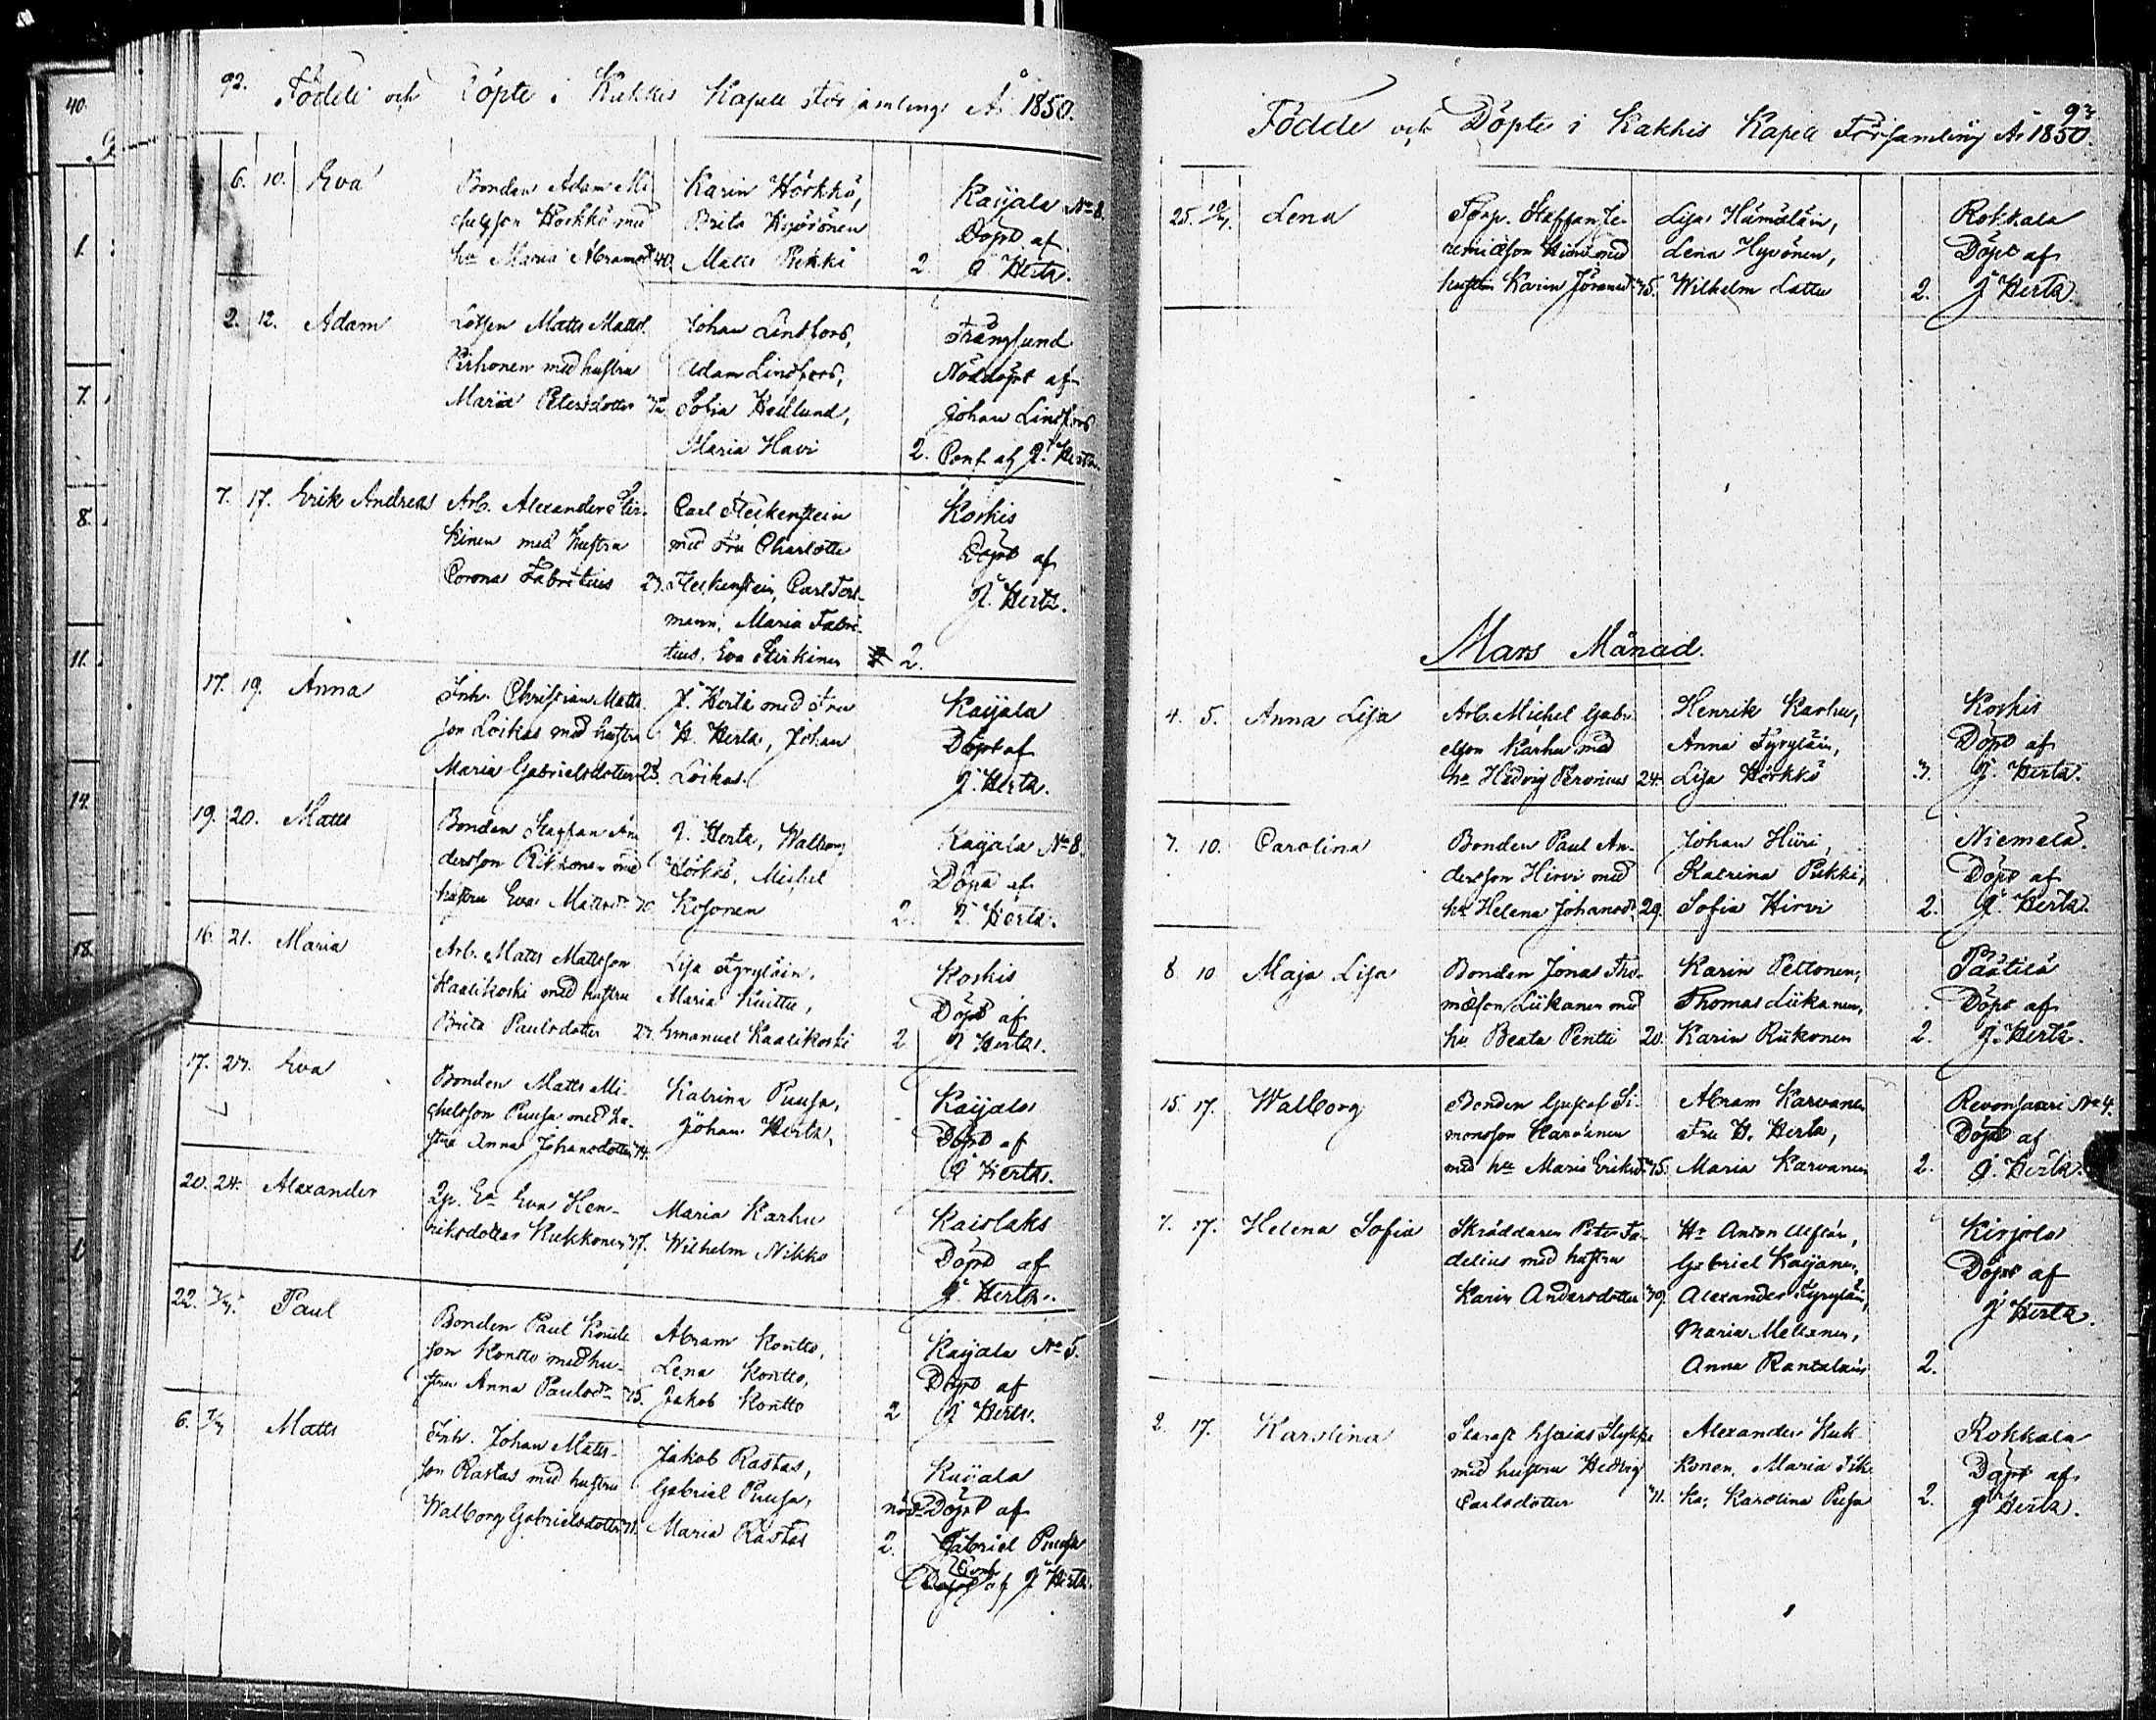 92. Födde och Döpte i Kakkis Kapell Församling År 1850.
6. 10. Eva
Bonden Adam Mi-
chelsson Hörkkö med
hu Maria Abramsd. 40.
Karin Hörkkö,
Brita Hyvönen
Matts Pukki
2.
Kaijala No 8.
Döpt af
J. Herta.
2. 12. Adam
Lotsen Matts Matts.
Pirhonen med hustru
Maria Petersdotter
Johan Lindfors,
Adam Lindfors,
Sofia Hedlund,
Maria Havi
2.
Trångsund
Nöddöpt af
Johan Lindfors
Conf. af J. Herta.
7. 17. Erik Andreas
Arb. Alexander Stir-
kinen med hustru
Corona Fabritius 27.
Carl Fleckenstein
med Fru Charlotte
Fleckenstein, Carl Fors-
mann, Maria Fabri-
tius, Eva Stirkinen
2.
Koskis
Döpt af
J. Herta.
17. 19. Anna
Inh. Christian Matts-
son Loikas med hustru
Maria Gabrielsdotter 23.
J. Herta med Fru
H. Herta, Johan
Loikas.
Kaijala
Döpt af
J. Herta.
19. 20. Matts
Bonden Staffan An-
dersson Riikonen med
hustru Eva Mattsdr
J. Herta, Walborg
Hörkkö, Michel
Kosonen
2.
Kaijala No 8.
Döpt af
J. Herta.
16. 21. Maria
Arb. Matts Mattsson
Kaalikoski med hustru
Brita Paulsdotter 27.
Lisa Tyryläin,
Maria Kuittu,
Emanuel Kaalikoski
2
Koskis
Döpt af
J. Herta.
17. 27. Eva
Bonden Matts Mi-
chelsson Puusa med hu-
stru Anna Johansdotter 44.
Katrina Puusa,
Johan Herta,
Kaijala
Döpt af
J. Herta.
20. 24. Alexander
Qp. Ea Eva Hen-
riksdotter Kukkonen 17.
Maria Karhu
Wilhelm Nikko
Kaislaks
Döpt af
J. Herta.
22. Paul
Bonden Paul
son Kontto med hu-
stru Anna Paulsdr 45.
Abram Kontto,
Lena Kontto,
Jakob Kontto
2
Kaijala No 5.
Döpt af
J. Herta.
6. Matts
Inh. Johan Matts-
son Rastas med hustru
Walborg Gabrielsdotter 41.
Jakob Rastas,
Gabriel Puusa,
Maria Rastas
2.
Kaijala
nöd Döpt af
Gabriel Puusa
Conf. af J. Herta.
93
Födde och Döpte i Kakkis Kapell Församling År 1850.
25. Lena
Torp. Staffan Je-
remiæson Hirvi med
hustru Karin Jöransd. 45.
Lisa Hämäläin,
Lena Hyvönen,
Wilhelm Lattu
2.
Rokkala
Döpt af
J Herta.
Mars Månad.
4. 5. Anna Lisa
Arb. Michel Gabri-
elson Karhu med
hu Hedvig Peronius 24.
Henrik Karhu,
Anna Tyryläin,
Lisa Hörkkö
3.
Koskis
Döpt af
J. Herta.
7. 10. Carolina
Bonden Paul An-
dersson Hirvi med
hu Helena Johansdr 29.
Johan Hirvi,
Katrina Pukki,
Sofia Hirvi
2.
Niemelä
Döpt af
J. Herta.
8. 10 Maja Lisa
Bonden Jonas Tho-
mæson Liikanen med
hu Beata Pentti 20.
Karin Peltonen,
Thomas Liikanen,
Karin Riikonen
2.
Päätilä
Döpt af
J. Herta.
15. 17. Walborg
Bonden Gustaf Si-
monsson Karvanen
med hu Maria Eriksd. 45.
Abram Karvanen
Fru H. Herta,
Maria Karvanen
2.
Revonsaari No 4.
Döpt af
J. Herta.
7. 17. Helena Sofia
Skräddaren Peter Fa-
delius med hustru
Karin Andersdotter 39.
Hr Anton
Gabriel Kaijanen,
Alexander Tyryläin,
Maria Mellanen,
Anna Rantalain
2.
Kirjola
Döpt af
J Herta.
2. 17. Karolina
Starast Esaias
med hustru Hedvig
Carlsdotter 41.
Alexander Kuk-
konen, Maria
ka, Karolina Pusa
2.
Rokkala
Döpt af
J Herta.
40.
1.
7.
8.
11.
14.
18.